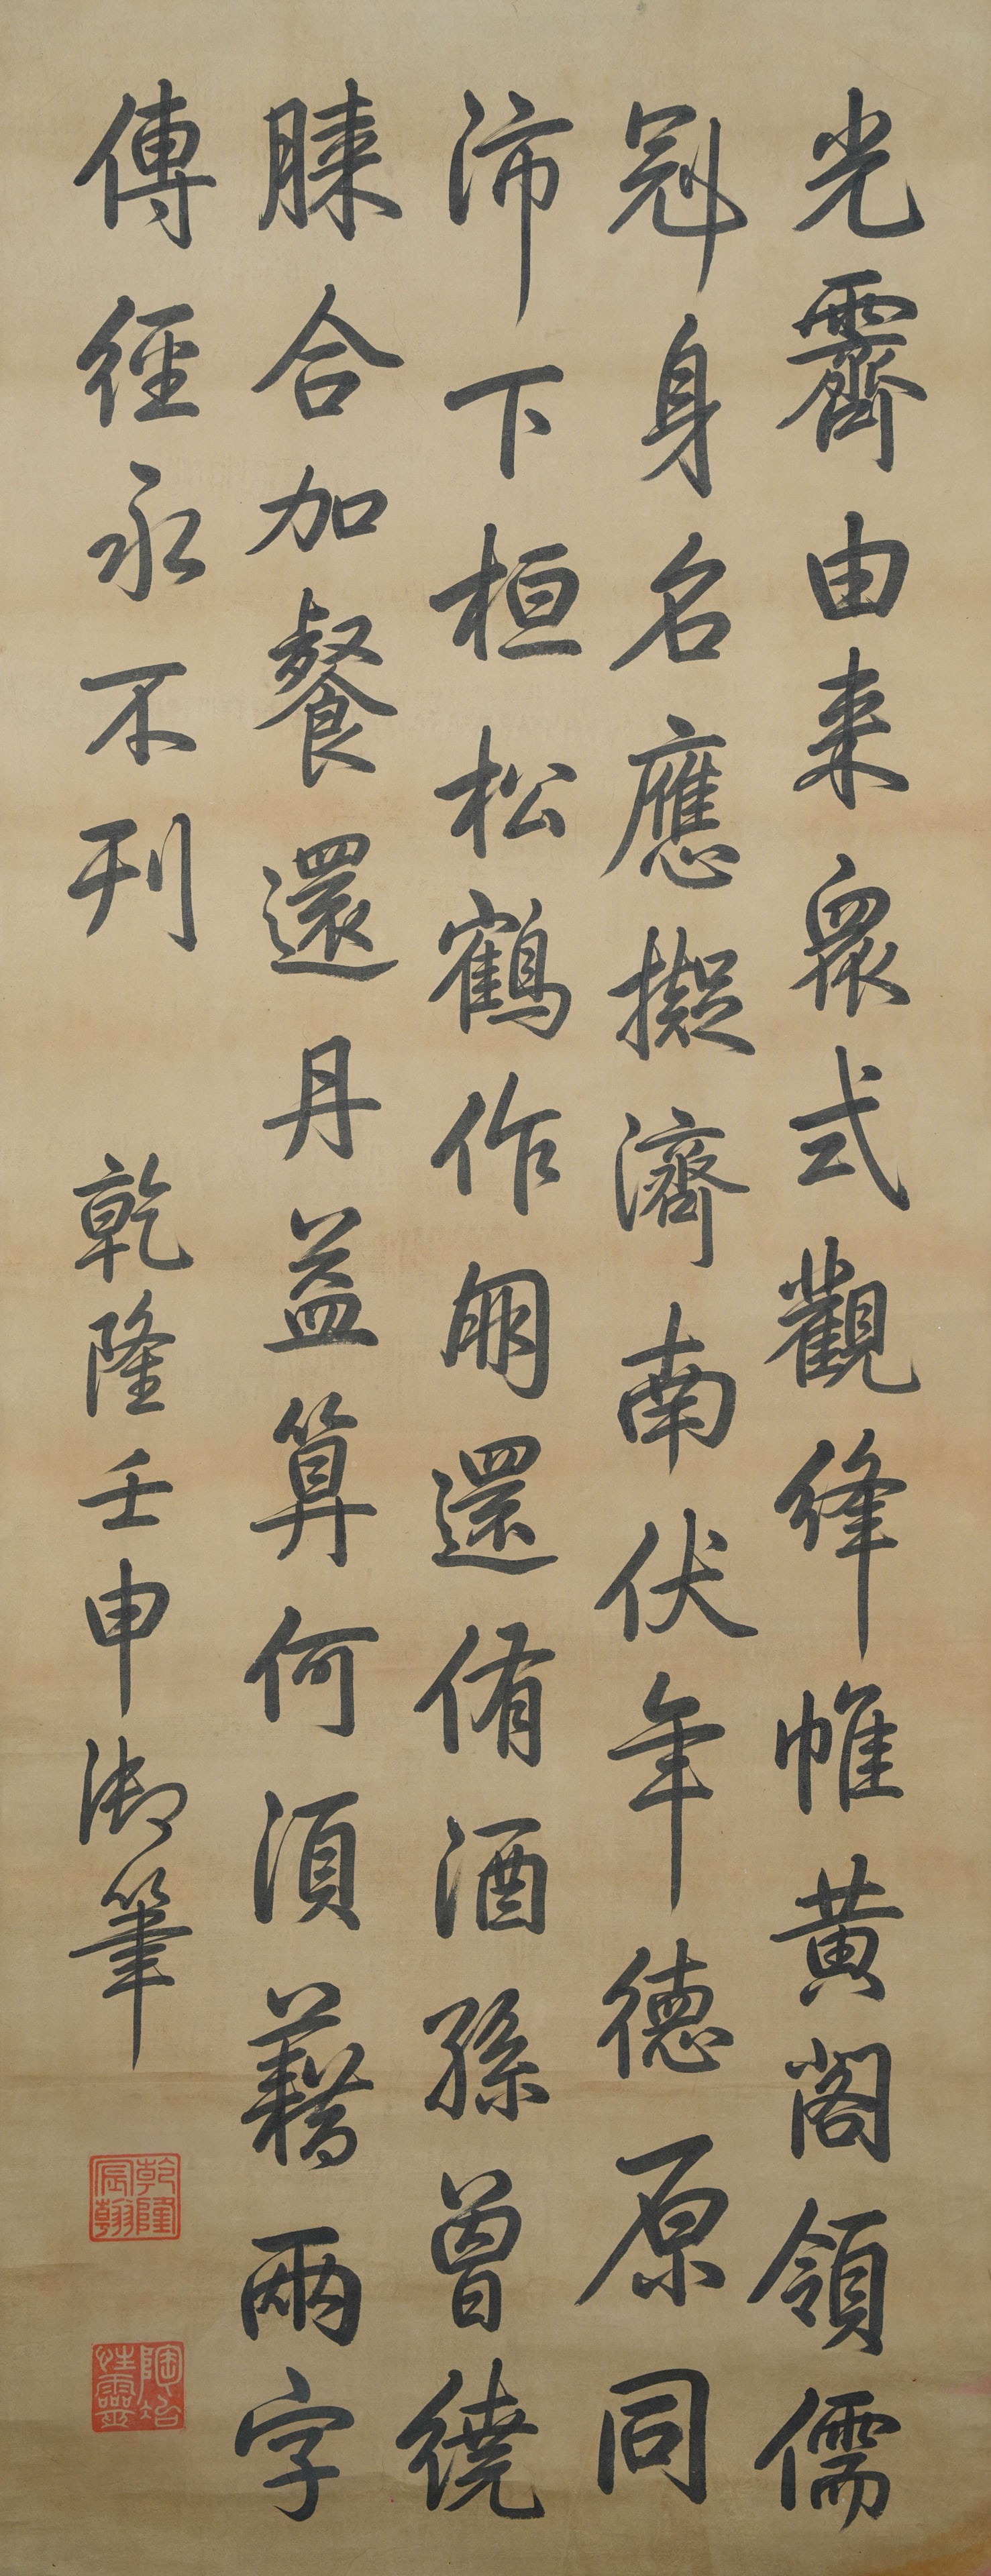 光霽由来眾式觀絳帷黃閣領儒
冠身名應擬濟南伏年德原同
沛下桓松鶴作朋還侑酒孫曾繞
膝合加餐還丹益算何須藉兩字
傳經永不刊
乾隆壬申御筆
乾隆宸翰
陶冶性靈